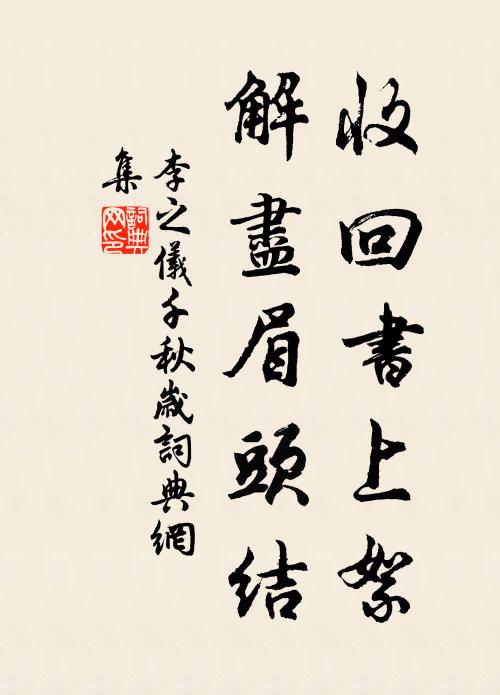 收回書上絮
解盡眉頭結
李之儀千秋歲詞典網
集
詞典
网印